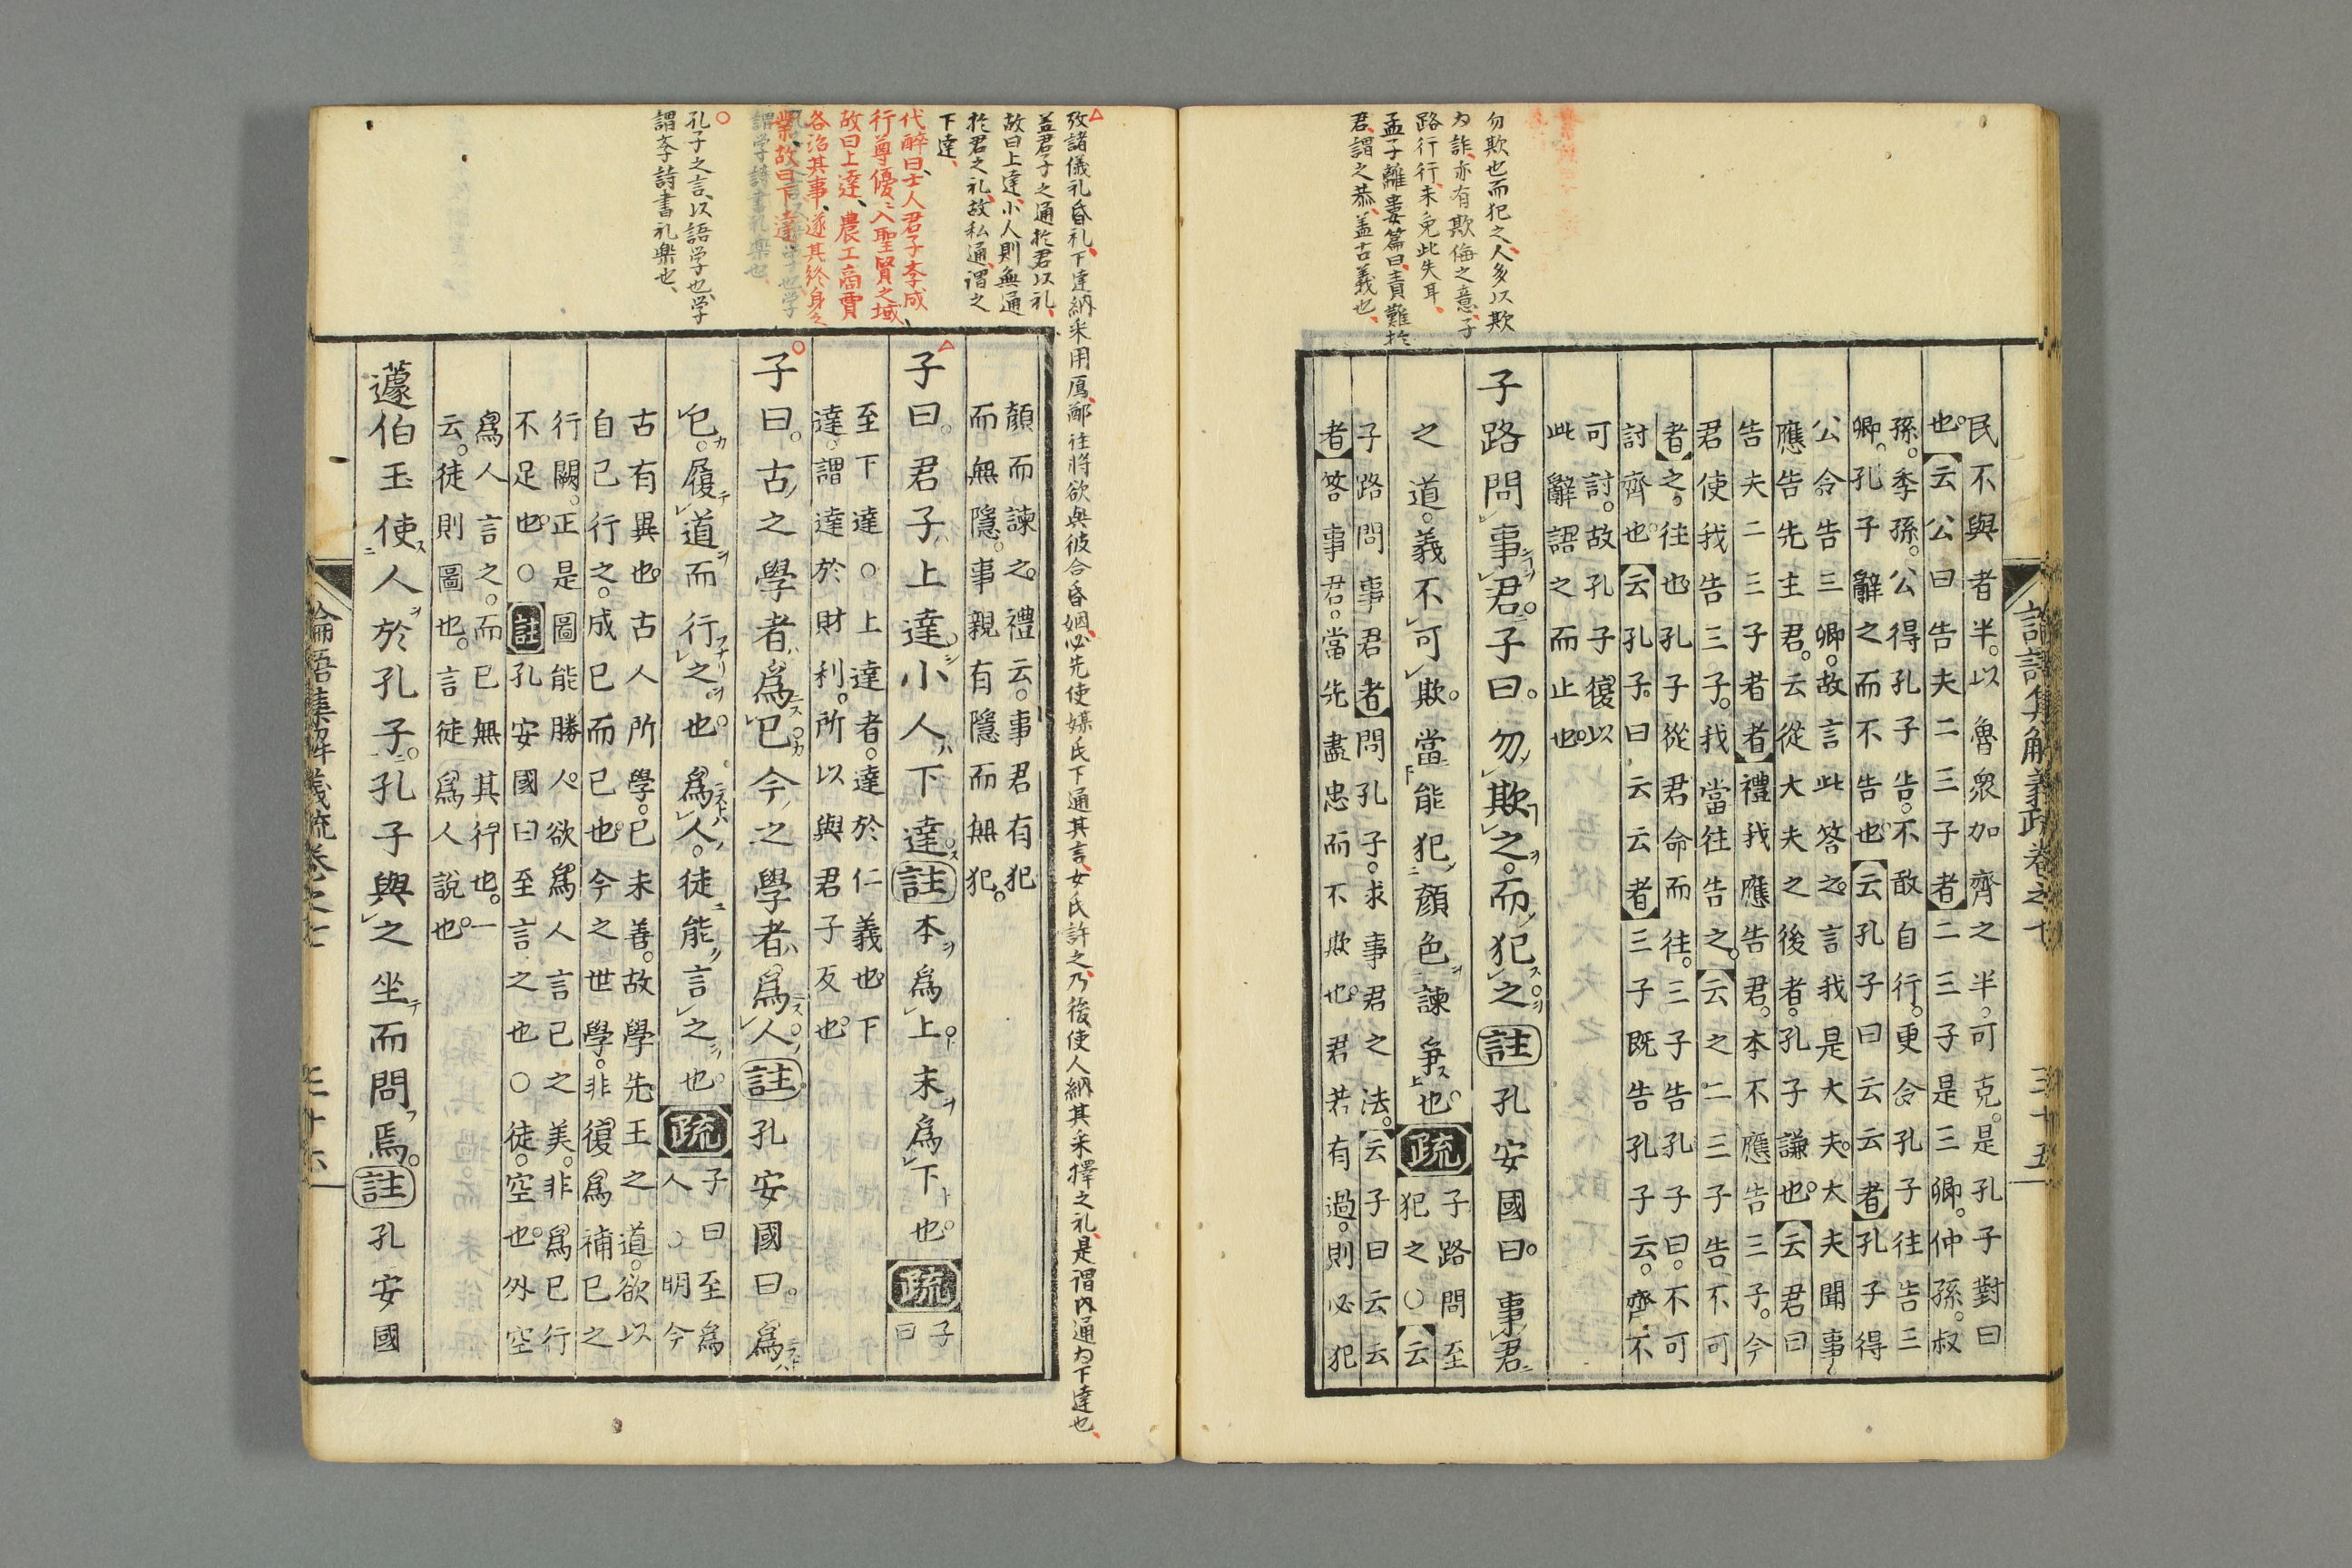 勿欺也而犯之人多以欺
為詐亦有欺侮之意子
路行行未免此失耳
孟子離婁篇曰責難於
君謂之恭蓋古義也
論語集解義疏卷之七
三十五
民不與者半以魯衆加齊之半可克是孔子對曰
也云公曰告夫二三子者二三子是三卿仲孫叔
孫季孫公得孔子告不敢自行更令孔子往告三
卿孔子辭之而不告也云孔子曰云云者孔子得
公令告三卿故言此答之言我是大夫大夫聞事
應告先主君云從大夫之後者孔子謙也云君曰
告夫二三子者者禮我應告君本不應告三子今
君使我告三子我當往告之云之二三子告不可
者之往也孔子從君命而往三子告孔子曰不可
討齊也云孔子曰云云者三子既告孔子云齊不
可討故孔子復以
此辭語之而止也
子路問事君子曰勿欺之而犯之註孔安國曰事君
之道義不可欺當能犯顔色諫爭也疏
子路問至
犯之○云
子路問事君者問孔子求事君之法云子曰云云
者答事君當先盡忠而不欺也君若有過則必犯
攷諸儀礼昏礼下達納采用鴈鄭注將欲與彼合昏姻必先使媒氏下通其言女氏許之乃後使人納其采擇之礼是謂内通為下達也
蓋君子之通於君以礼
故曰上達小人則無通
於君之礼故私通謂之
下達
代醉曰士人君子李成
行尊優々入聖賢之域
故曰上達農工商賈
各治其事遂其終身之
業故曰下達
孔子之言以語学也学
謂李詩書礼楽也
顔而諫之禮云事君有犯
而無隱事親有隱而無犯
子曰君子上達小人下達註本為上末為下也疏
子
曰
至下達○上達者達於仁義也下
達謂達於財利所以與君子反也
子曰古之學者為已今之學者為人註孔安國曰為
已履道而行之也為人徒能言之也疏
子曰至為
人○明今
古有異也古人所學已未善故學先王之道欲以
自已行之成已而已也今之世學非復為補已之
行闕正是圖能勝人欲為人言已之美非為已行
不足也○註孔安國曰至言之也○徒空也外空
為人言之而已無其行也一
云徒則圖也言徒為人說也
蘧伯玉使人於孔子孔子與之坐而問焉註孔安國
論語集解義疏卷之七
三十六